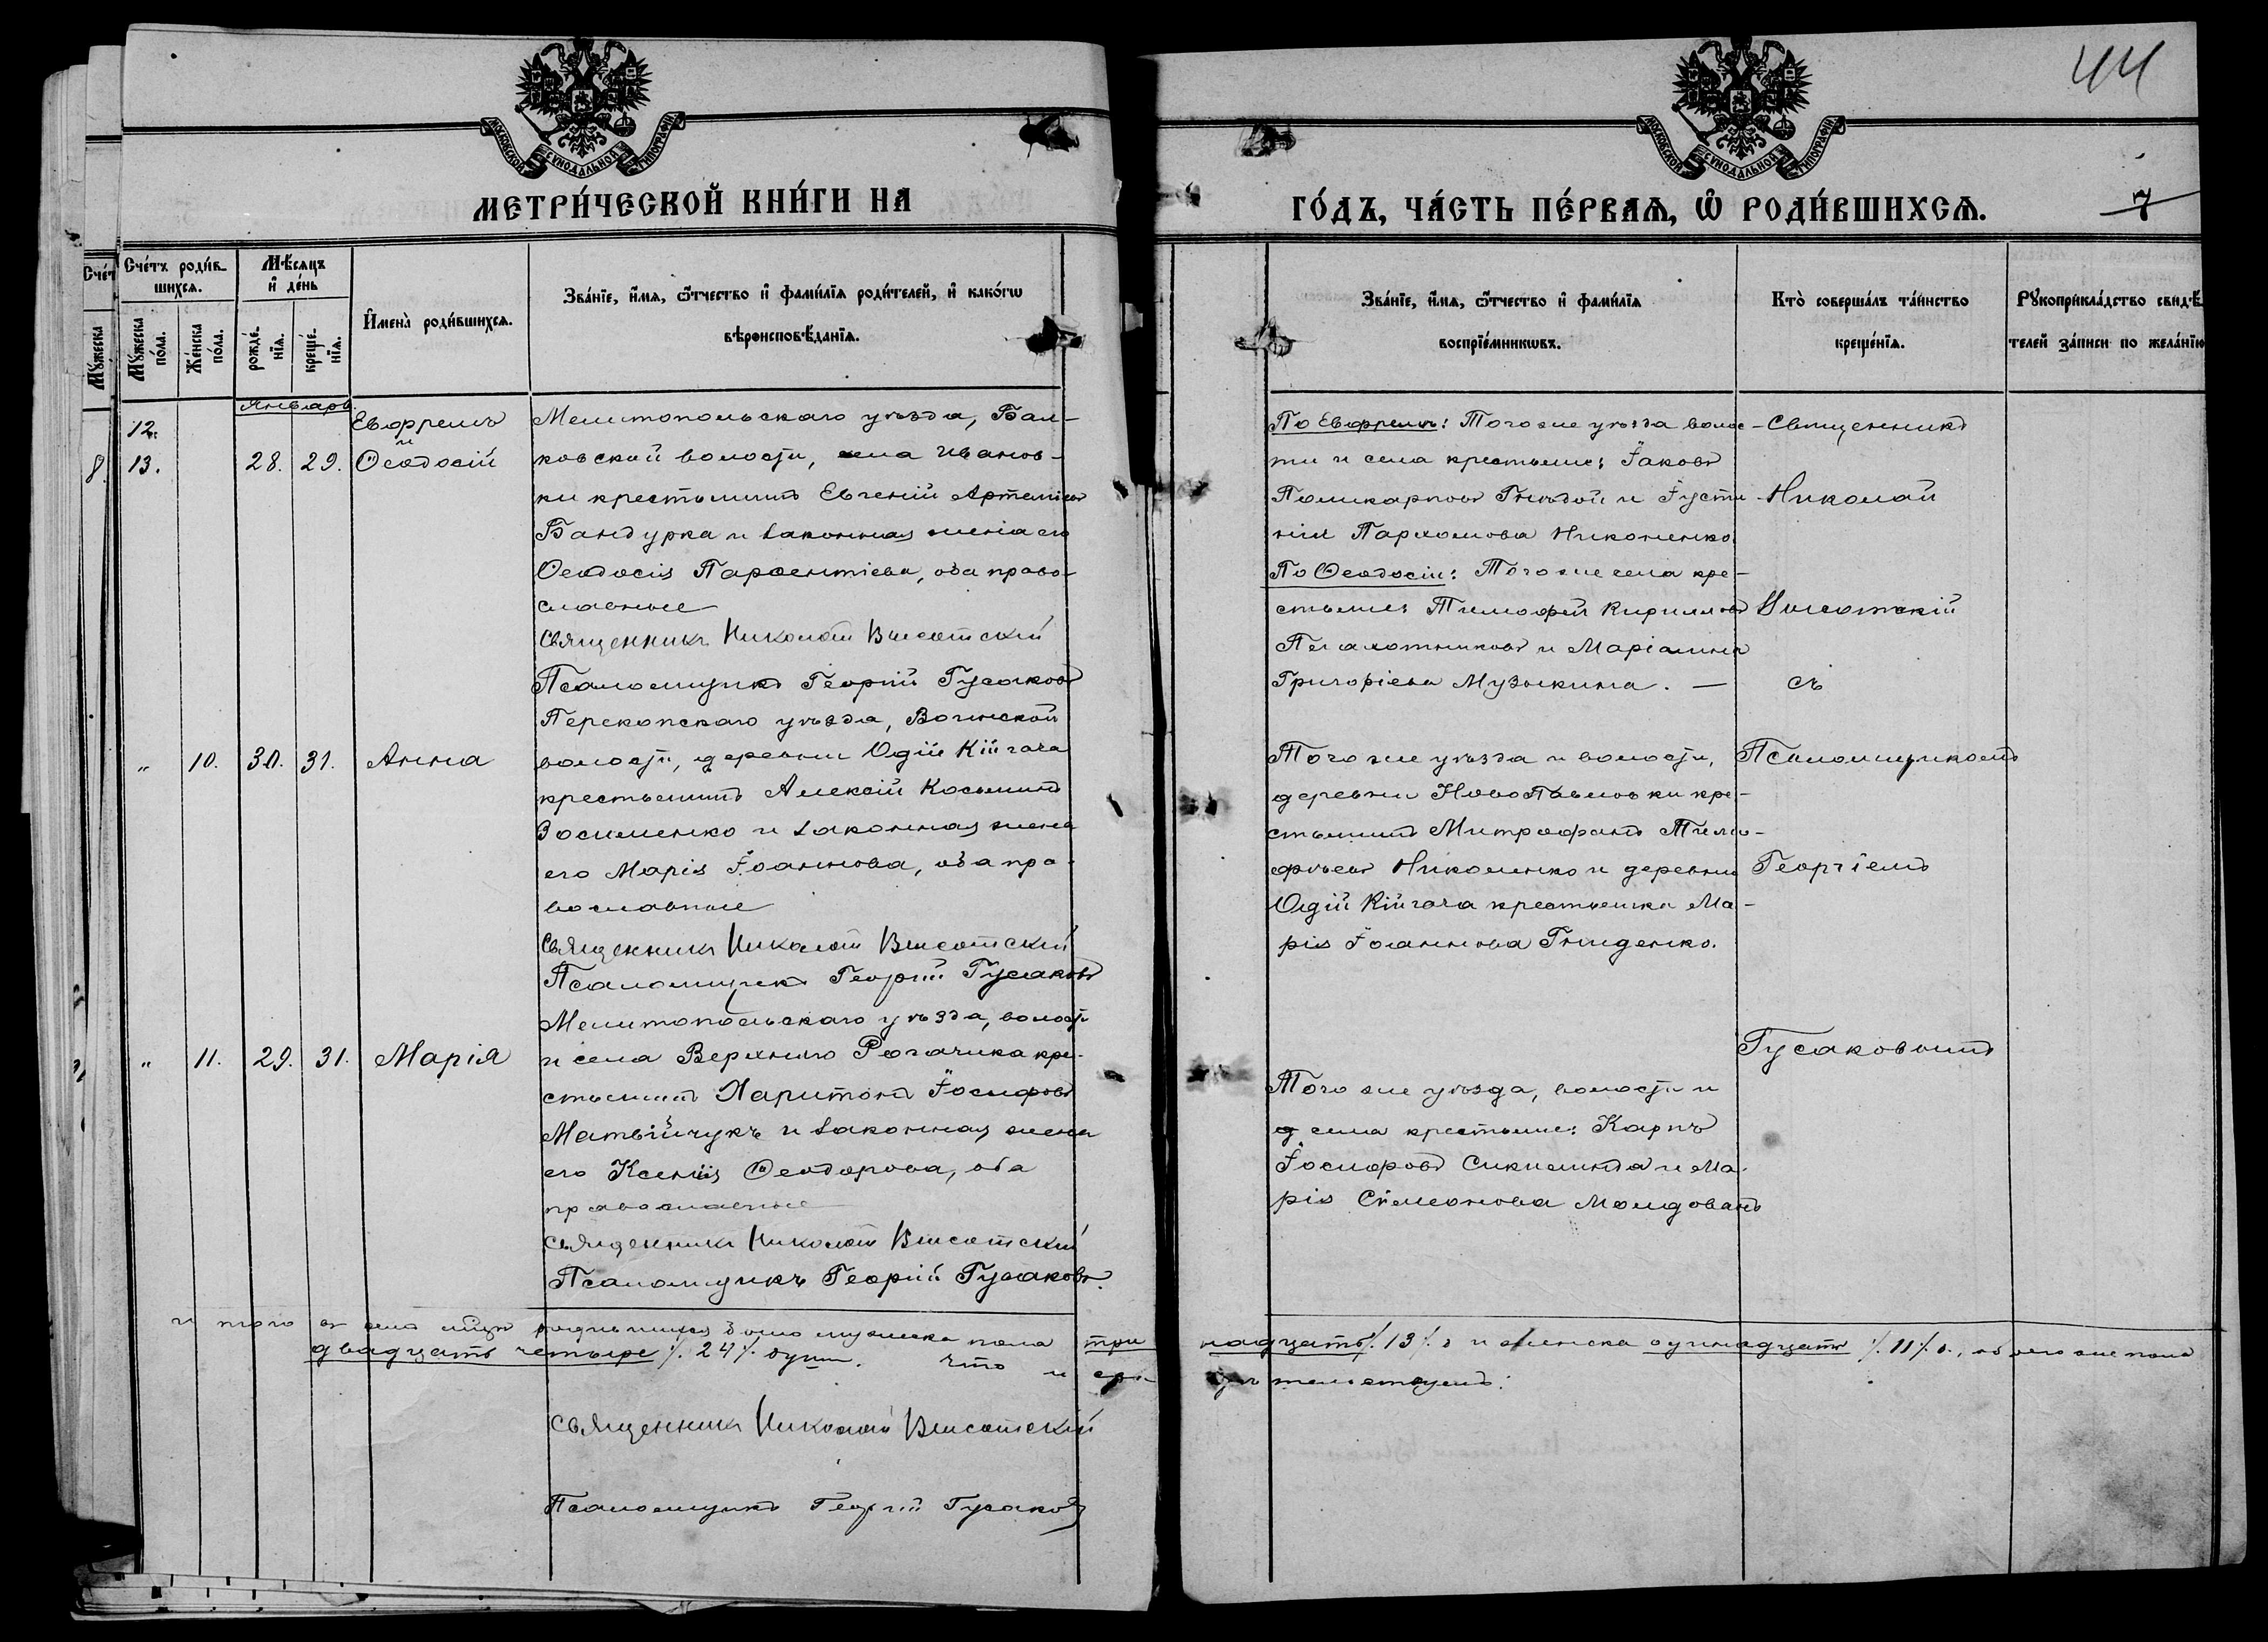 44
МОСКОВСКОЙ СУНОДАЛЬНОЙ ТИПОГРАФІИ
МЕТРИ́ЧЕСКОЙ КНИ́ГИ НА
МОСКОВСКОЙ СУНОДАЛЬНОЙ ТИПОГРАФІИ
ГО́ДЪ, ЧА́СТЬ ПЕ́РВАЯ, Ѡ РОДИ́ВШИХСЯ.
7
Сче́т
Мꙋ́жеска
8.
Сче́тъ роди́в-
шихся.
Мꙋ́жеска по́ла.
Же́нска по́ла.
Мѣ́сяцъ и де́нь
рожде́нїя.
креще́нїя.
Имена̀ роди́вшихся.
Зва́нїе, и́мя, ѻ́тчество и фами́лїя роди́телей, и како́гѡ
вѣроисповѣ́данїя.
Зва́нїе, и́мя, ѻ́тчество и фами́лїя
воспрїе́мникѡвъ.
Кто̀ соверша́лъ та́инство
креще́нїя.
Рꙋкоприкла́дство свидѣ́-
телей за́писи по жела́нїю
Январь
12.
13.
28. 29.
Евфремъ
и
Ѳеодосій
Мелитопольскаго уѣзда, Бал-
ковской волости, села Иванов-
ки крестьянинъ Евгеній Артеміевъ
Бандурка и законная жена его
Ѳеодосія Парѳентіева, оба право-
славные
Священникъ Николай Высотскій
Псаломщикъ Георгій Гусаковъ
По Евфрему: Того же уѣзда волос-
ти и села крестьяне: Іаковъ
Поликарповъ Гнѣдой и Іусти-
нія Пархомова Никоненко.
По Ѳеодосіи: Того же села кре-
стьяне: Тимофей Кирилловъ
и Маріанна
Григоріева Музыкина. —
Священникъ
Николай
Высотскій
съ
Псаломщикомъ
Георгіемъ
Гусаковымъ
„ 10. 30. 31. Анна
Перекопскаго уѣзда, Воинской
волости, деревни Юдій Кійгача
крестьянинъ Алексій Косьминъ
Зосименко и законная жена
его Марія Іоаннова, оба пра-
вославные
Священникъ Николай Высотскій
Псаломщикъ Георгій Гусаковъ
Того же уѣзда и волости,
деревни Новопавловки кре-
стьянинъ Митрофанъ Тимо-
фѣевъ Николенко и деревни
Юдій Кійгача крестьянка Ма-
рія Іоаннова Гниденко.
„ 11. 29. 31. Марія
Мелитопольскаго уѣзда, волости
и села Верхняго Рогачика кре-
стьянинъ Харитонъ Іосифовъ
Матвійчукъ и законная жена
его Ксенія Ѳеодорова, оба
православные
Священникъ Николай Высотскій
Псаломщикъ Георгій Гусаковъ.
Того же уѣзда, волости и
села крестьяне: Карпъ
Іосифовъ и Ма-
рія Симеонова Молдованъ
И того въ семъ мѣсяцѣ родившихся было мужеска пола тринадцать /. 13 /. и женска одиннадцать /. 11 /., обоего же пола
двадцать четыре /. 24 /. душъ. Что и свидѣтельствуемъ:
Священникъ Николай Высотскій
Псаломщикъ Георгій Гусаковъ